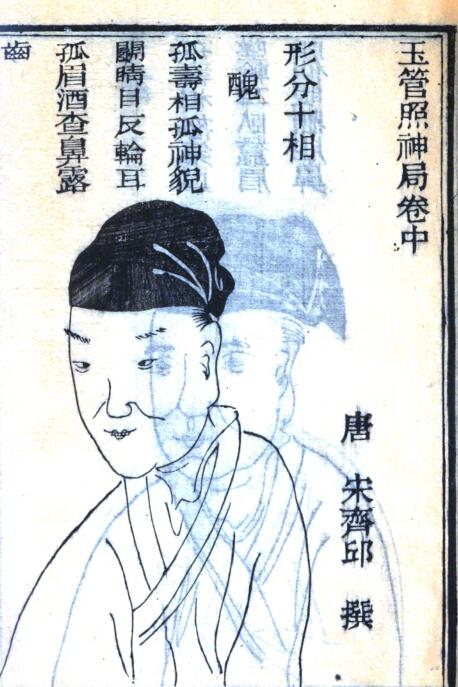 玉管照神局卷中
唐 宋齊邱 撰
形分十相
醜
孤壽相孤神貌
鬬睛目反輪耳
孤眉酒查鼻露
齒